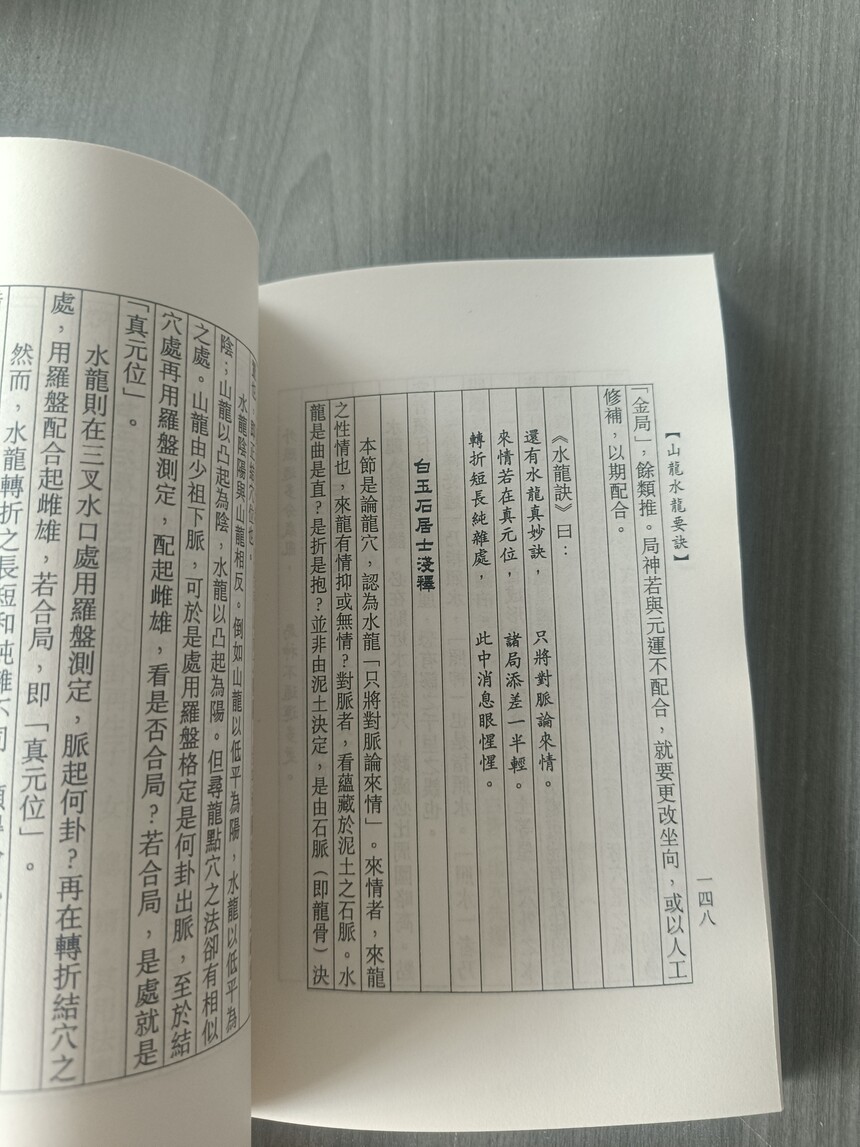 【山龍水龍要訣】
一四八
「金局」，餘類推。局神若與元運不配合，就要更改坐向，或以人工
修補，以期配合。
《水龍訣》曰：
還有水龍真妙訣，只將對脈論來情。
來情若在真元位，諸局添差一半輕。
轉折短長純雜處，此中消息眼惺惺。
白玉石居士淺釋
本節是論龍穴，認為水龍「只將對脈論來情」。來情者，來龍
之性情也，來龍有情抑或無情？對脈者，看蘊藏於泥土之石脈。水
龍是曲是直？是折是抱？並非由泥土決定，是由石脈（即龍骨）決
水龍陰陽與山龍相反。倒如山龍以低平為陽，水龍以低平為
陰；山龍以凸起為陰，水龍以凸起為陽。但尋龍點穴之法卻有相似
之處。山龍由少祖下脈，可於是處用羅盤格定是何卦出脈，至於結
穴處再用羅盤測定，配起雌雄，看是否合局？若合局，是處就是
「真元位」。
水龍則在三叉水口處用羅盤測定，脈起何卦？再在轉折結穴之
處，用羅盤配合起雌雄，若合局，即「真元位」。
然而，水龍轉折之長短和純雜不同